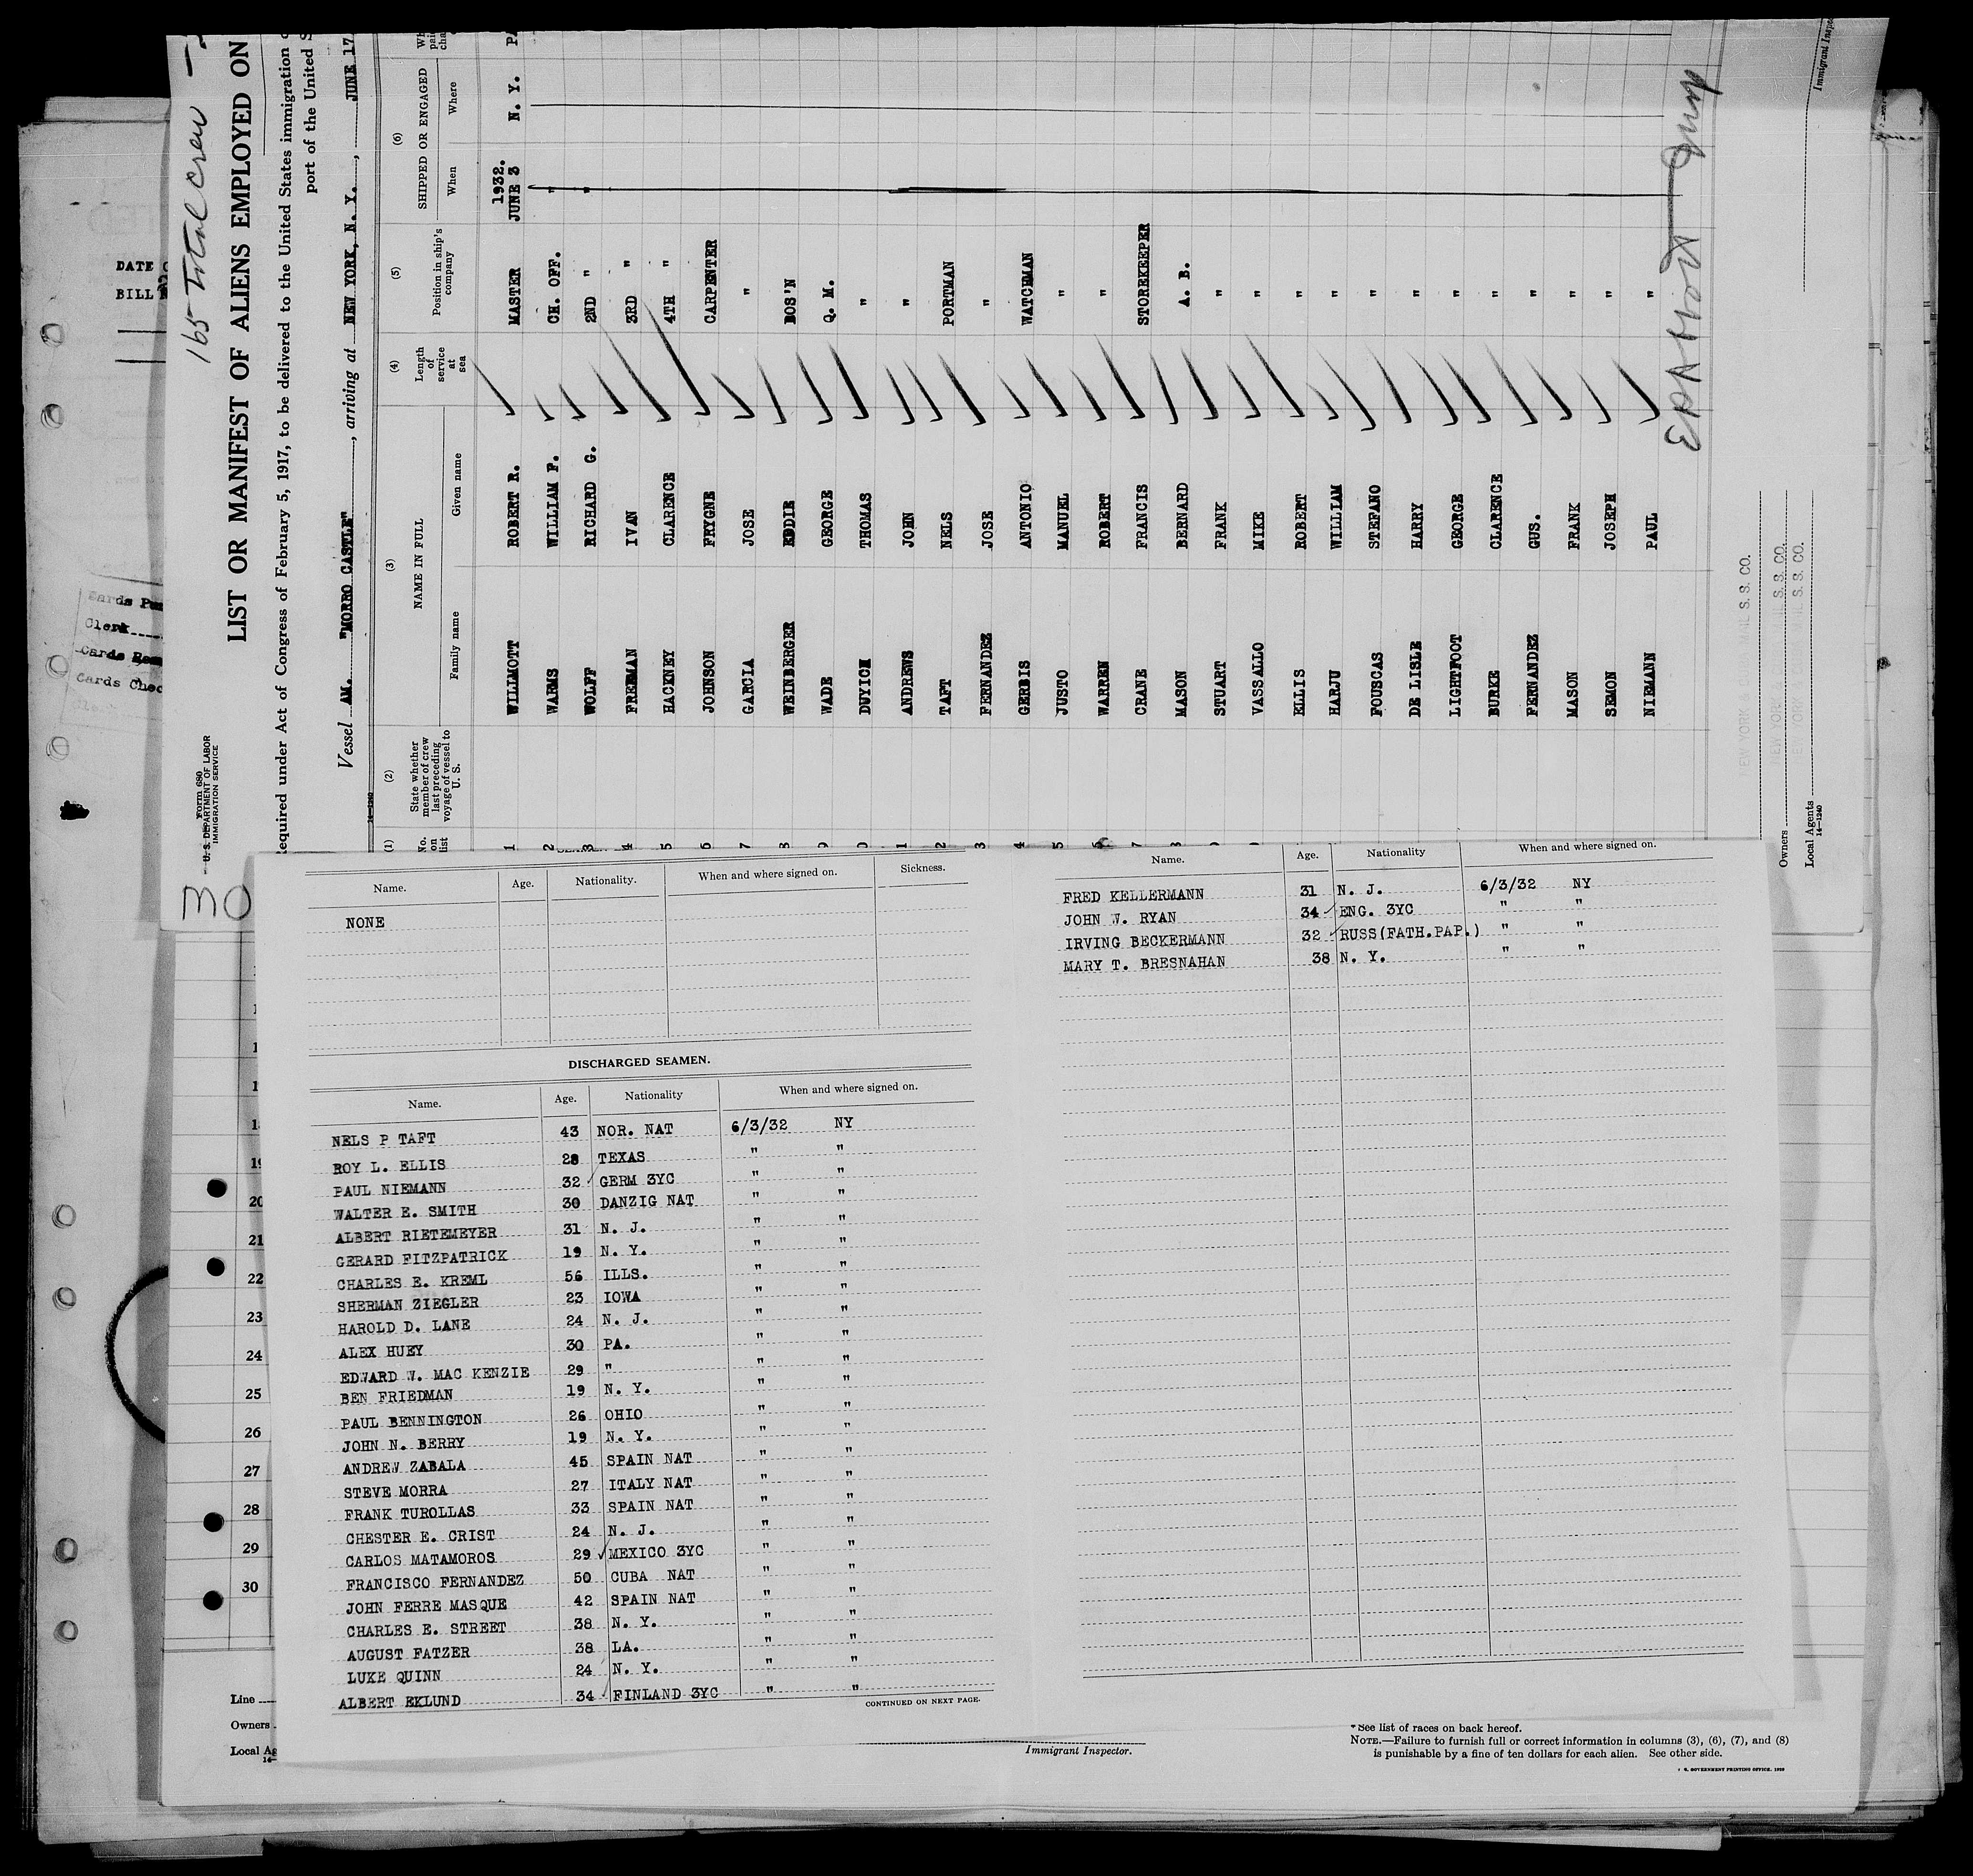 165 Total crew
LIST OR MANIFEST OF ALIENS EMPLOYED ON
Required under Act of Congress of February 5, 1917, to be delivered to the United States immigration
port of the United
Vessel AM. "MORRO CASTLE", arriving at NEW YORK, N. Y., JUNE 17
Form 680
U. S. DEPARTMENT OF LABOR
IMMIGRATION SERVICE
14—1240
(1) No. on list
(2) State whether member of crew last preceding voyage of vessel to U. S.
(3) NAME IN FULL Family name Given name
(4) Length of service at sea
(5) Position in ship's company
(6) SHIPPED OR ENGAGED When Where
1932.
1 WILLMOTT ROBERT R. MASTER JUNE 3 N. Y.
2 WARMS WILLIAM F. CH. OFF. "
3 WOLFF RICHARD G. 2ND " "
4 FREEMAN IVAN 3RD "
5 HACKNEY CLARENCE 4TH "
6 JOHNSON FRYGNE CARPENTER
7 GARCIA JOSE "
8 WEINBERGER EDDIE BOS'N
9 WADE GEORGE Q. M.
0 DUYICH THOMAS "
1 ANDREWS JOHN "
2 TAFT NELS PORTMAN
3 FERNANDEZ JOSE "
4 GERDIS ANTONIO WATCHMAN
5 JUSTO MANUEL "
WARREN ROBERT "
7 CRANE FRANCIS STOREKEEPER
8 MASON BERNARD A. B.
STUART FRANK "
VASSALLO MIKE "
ELLIS ROBERT "
HARJU WILLIAM "
FOUSCAS STEFANO "
DE LISLE HARRY "
LIGHTFOOT GEORGE "
BURKE CLARENCE "
FERNANDEZ GUS. "
MASON FRANK "
SEMON JOSEPH "
NIEMANN PAUL "
NEW YORK & CUBA MAIL S. S. CO.
Owners NEW YORK S. S. CO.
Local Agents S. S. CO.
14—1240
Immigrant Insp
30
DATE
BILL
Clerk
Cards Chec
Name. Age. Nationality. When and where signed on. Sickness.
NONE
DISCHARGED SEAMEN.
Name. Age. Nationality When and where signed on.
NELS P TAFT 43 NOR. NAT 6/3/32 NY
ROY L. ELLIS 28 TEXAS " "
PAUL NIEMANN 32 GERM 3YC " "
WALTER E. SMITH 30 DANZIG NAT " "
ALBERT RIETEMEYER 31 N. J. " "
GERARD FITZPATRICK 19 N. Y. " "
CHARLES E. KREML 56 ILLS. " "
SHERMAN ZIEGLER 23 IOWA " "
HAROLD D. LANE 24 N. J. " "
ALEX HUEY 30 PA. " "
EDWARD W. MAC KENZIE 29 " " "
BEN FRIEDMAN 19 N. Y. " "
PAUL BENNINGTON 26 OHIO " "
JOHN N. BERRY 19 N. Y. " "
ANDREW ZABALA 45 SPAIN NAT " "
STEVE MORRA 27 ITALY NAT " "
FRANK TUROLLAS 33 SPAIN NAT " "
CHESTER E. CRIST 24 N. J. " "
CARLOS MATAMOROS 29 MEXICO 3YC " "
FRANCISCO FERNANDEZ 50 CUBA NAT " "
JOHN FERRE MASQUE 42 SPAIN NAT " "
CHARLES E. STREET 38 N. Y. " "
AUGUST FATZER 38 LA. " "
LUKE QUINN 24 N. Y. " "
ALBERT EKLUND 34 FINLAND 3YC " "
CONTINUED ON NEXT PAGE.
Name. Age. Nationality When and where signed on.
FRED KELLERMANN 31 N. J. 6/3/32 NY
JOHN W. RYAN 34 ENG. 3YC " "
IRVING BECKERMANN 32 RUSS(FATH.PAP.) " "
MARY T. BRESNAHAN 38 N. Y. " "
19
20
21
22
23
24
25
26
27
28
29
30
Line
Owners
Local Ag
Immigrant Inspector.
* See list of races on back hereof.
NOTE.—Failure to furnish full or correct information in columns (3), (6), (7), and (8)
is punishable by a fine of ten dollars for each alien. See other side.
GOVERNMENT PRINTING OFFICE